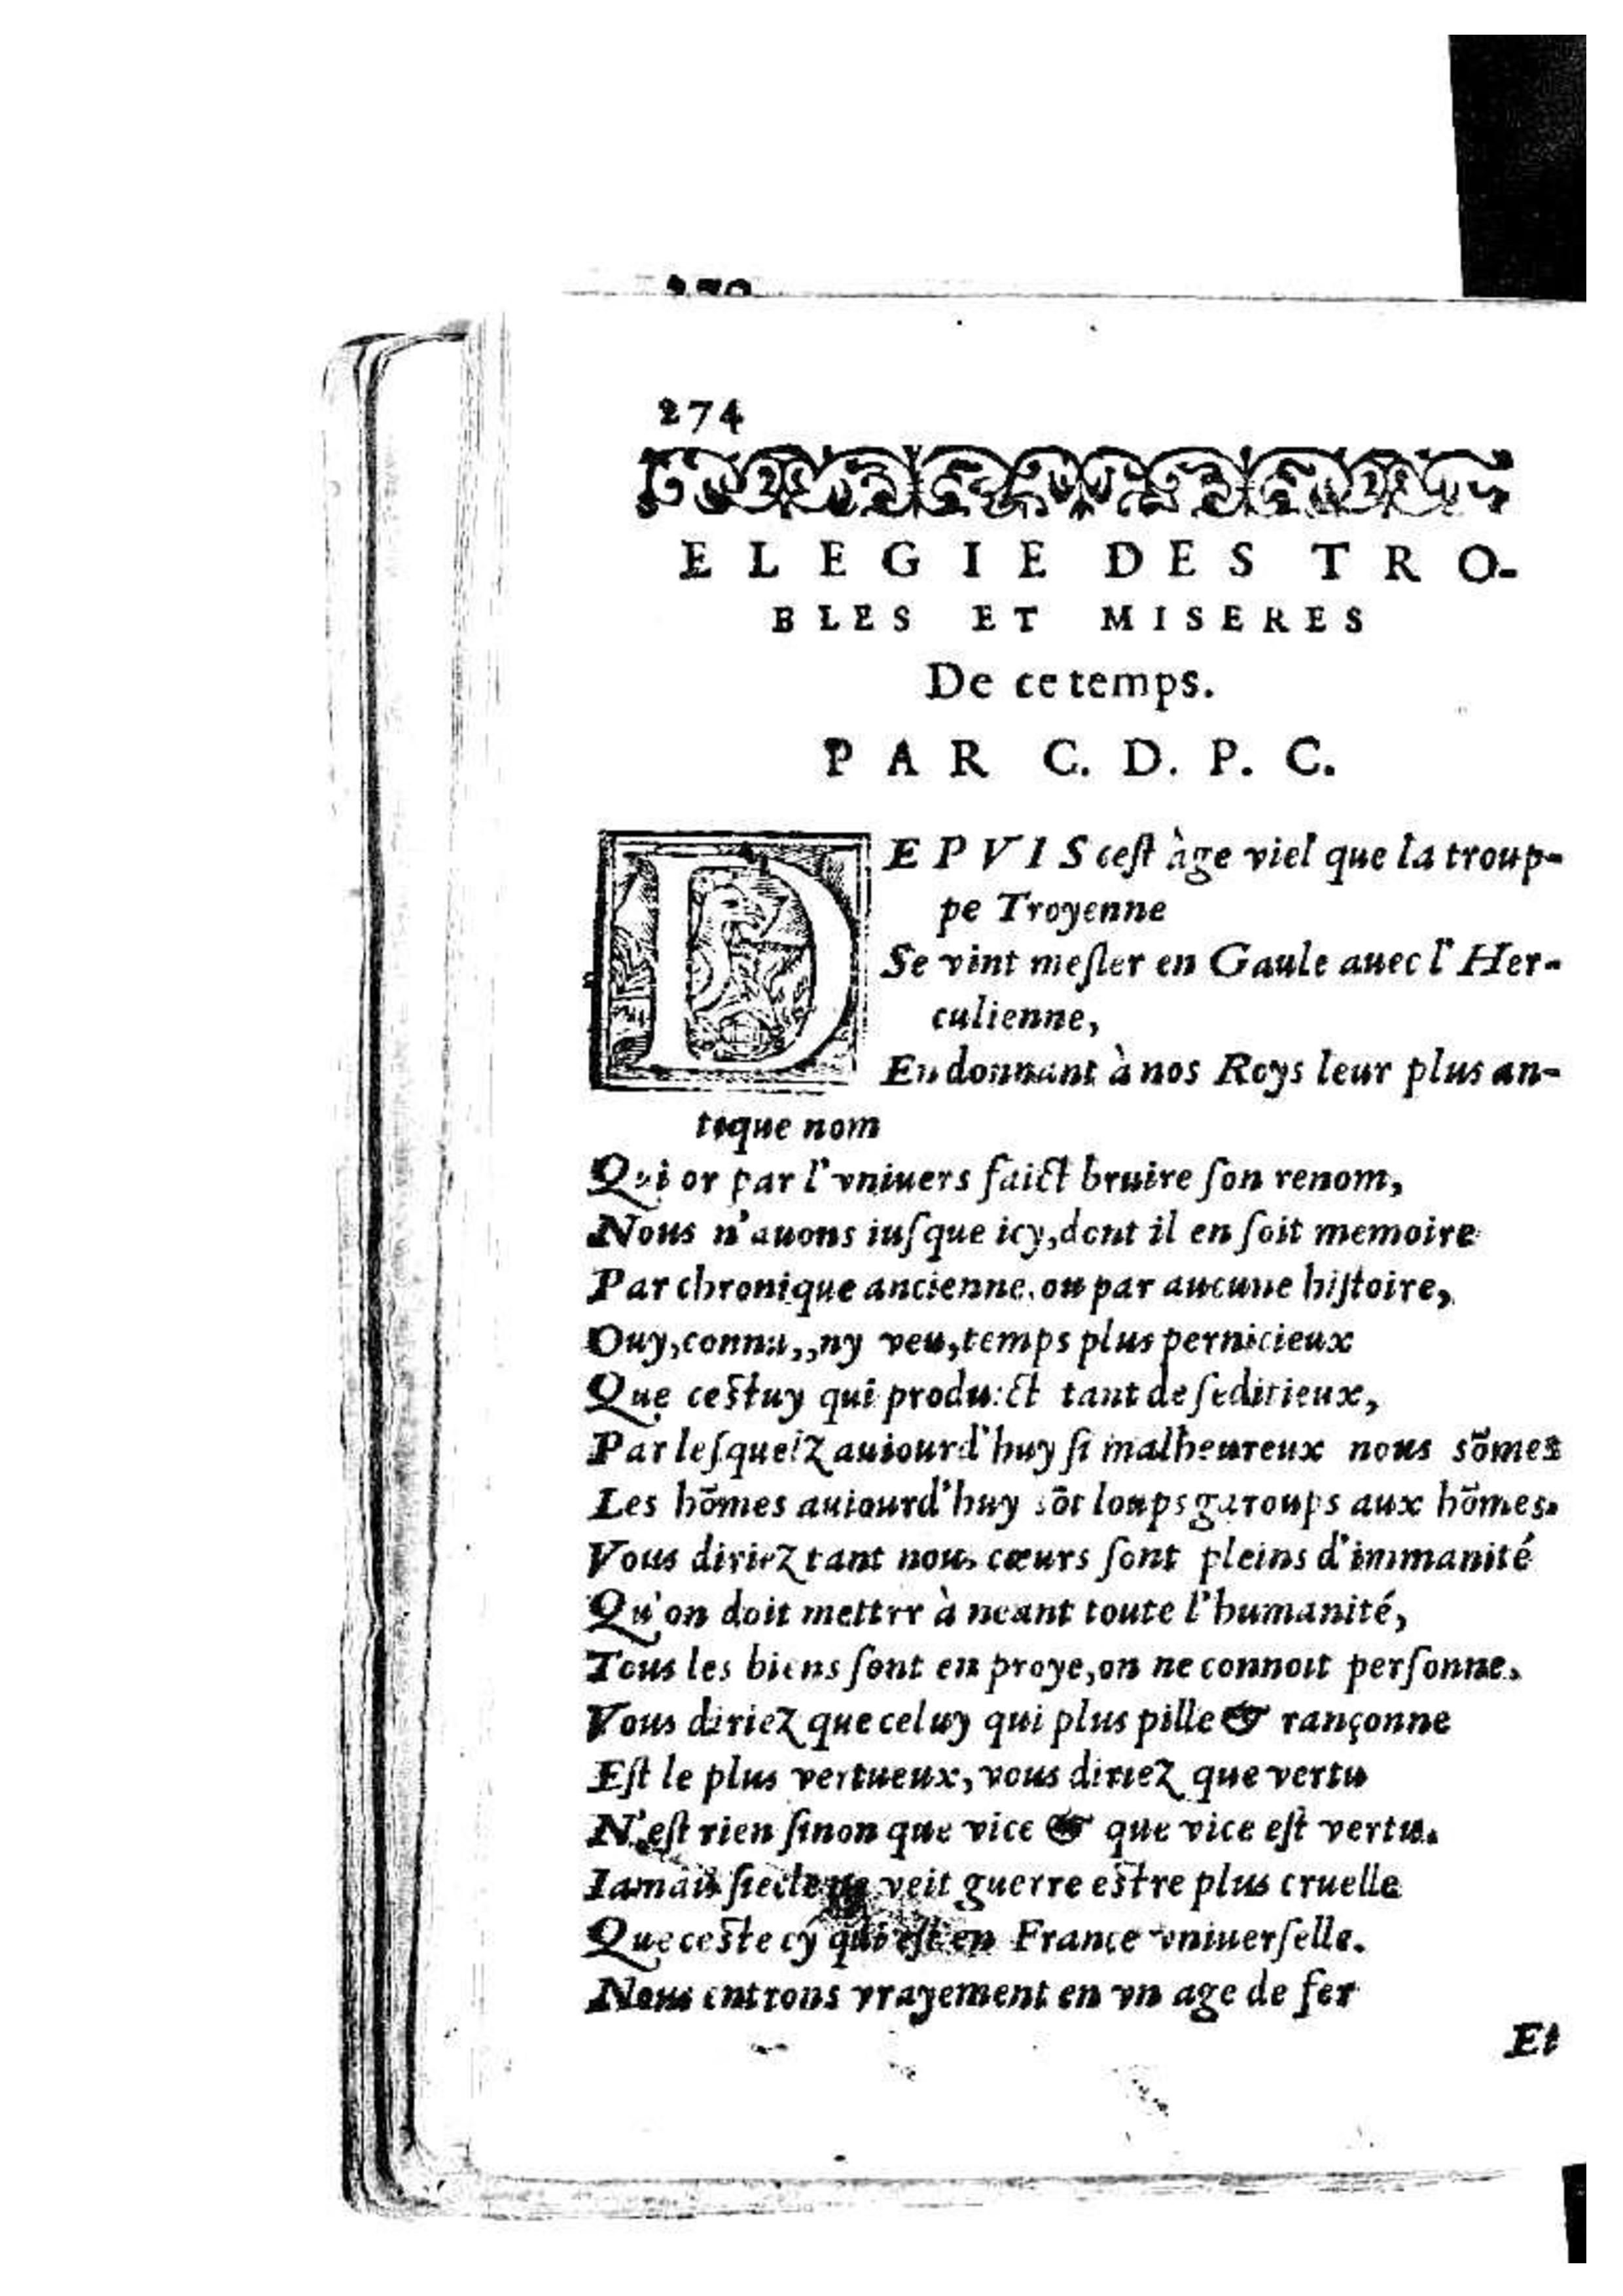 274
ELEGIE DES TRO-
BLES ET MISERES
De ce temps.
PAR C. D. P. C.
DEPVIS cest àge viel que la troup-
pe Troyenne
Se vint mesler en Gaule auec l'Her-
culienne,
En donnant à nos Roys leur plus an-
tique nom
Qui or par l'vniuers faict bruire son renom,
Nous n'auons iusque icy, dont il en soit memoire
Par chronique ancienne, ou par aucune histoire,
Ouy, connu,, ny veu, temps plus pernicieux
Que cestuy qui produict tant de seditieux,
Par lesquelz auiourd'huy si malheureux nous sõmes
Les hõmes auiourd'huy sõt loups garoups aux hõmes.
Vous diriez tant nous cœurs sont pleins d'immanité
Qu'on doit mettrr à neant toute l'humanité,
Tous les biens sont en proye, on ne connoit personne.
Vous diriez que celuy qui plus pille & rançonne
Est le plus vertueux, vous diriez que vertu
N'est rien sinon que vice & que vice est vertu.
Iamais siecle ne veit guerre estre plus cruelle
Que ceste cy qui est en France vniuerselle.
Nous entrons vrayement en vn age de fer
Et